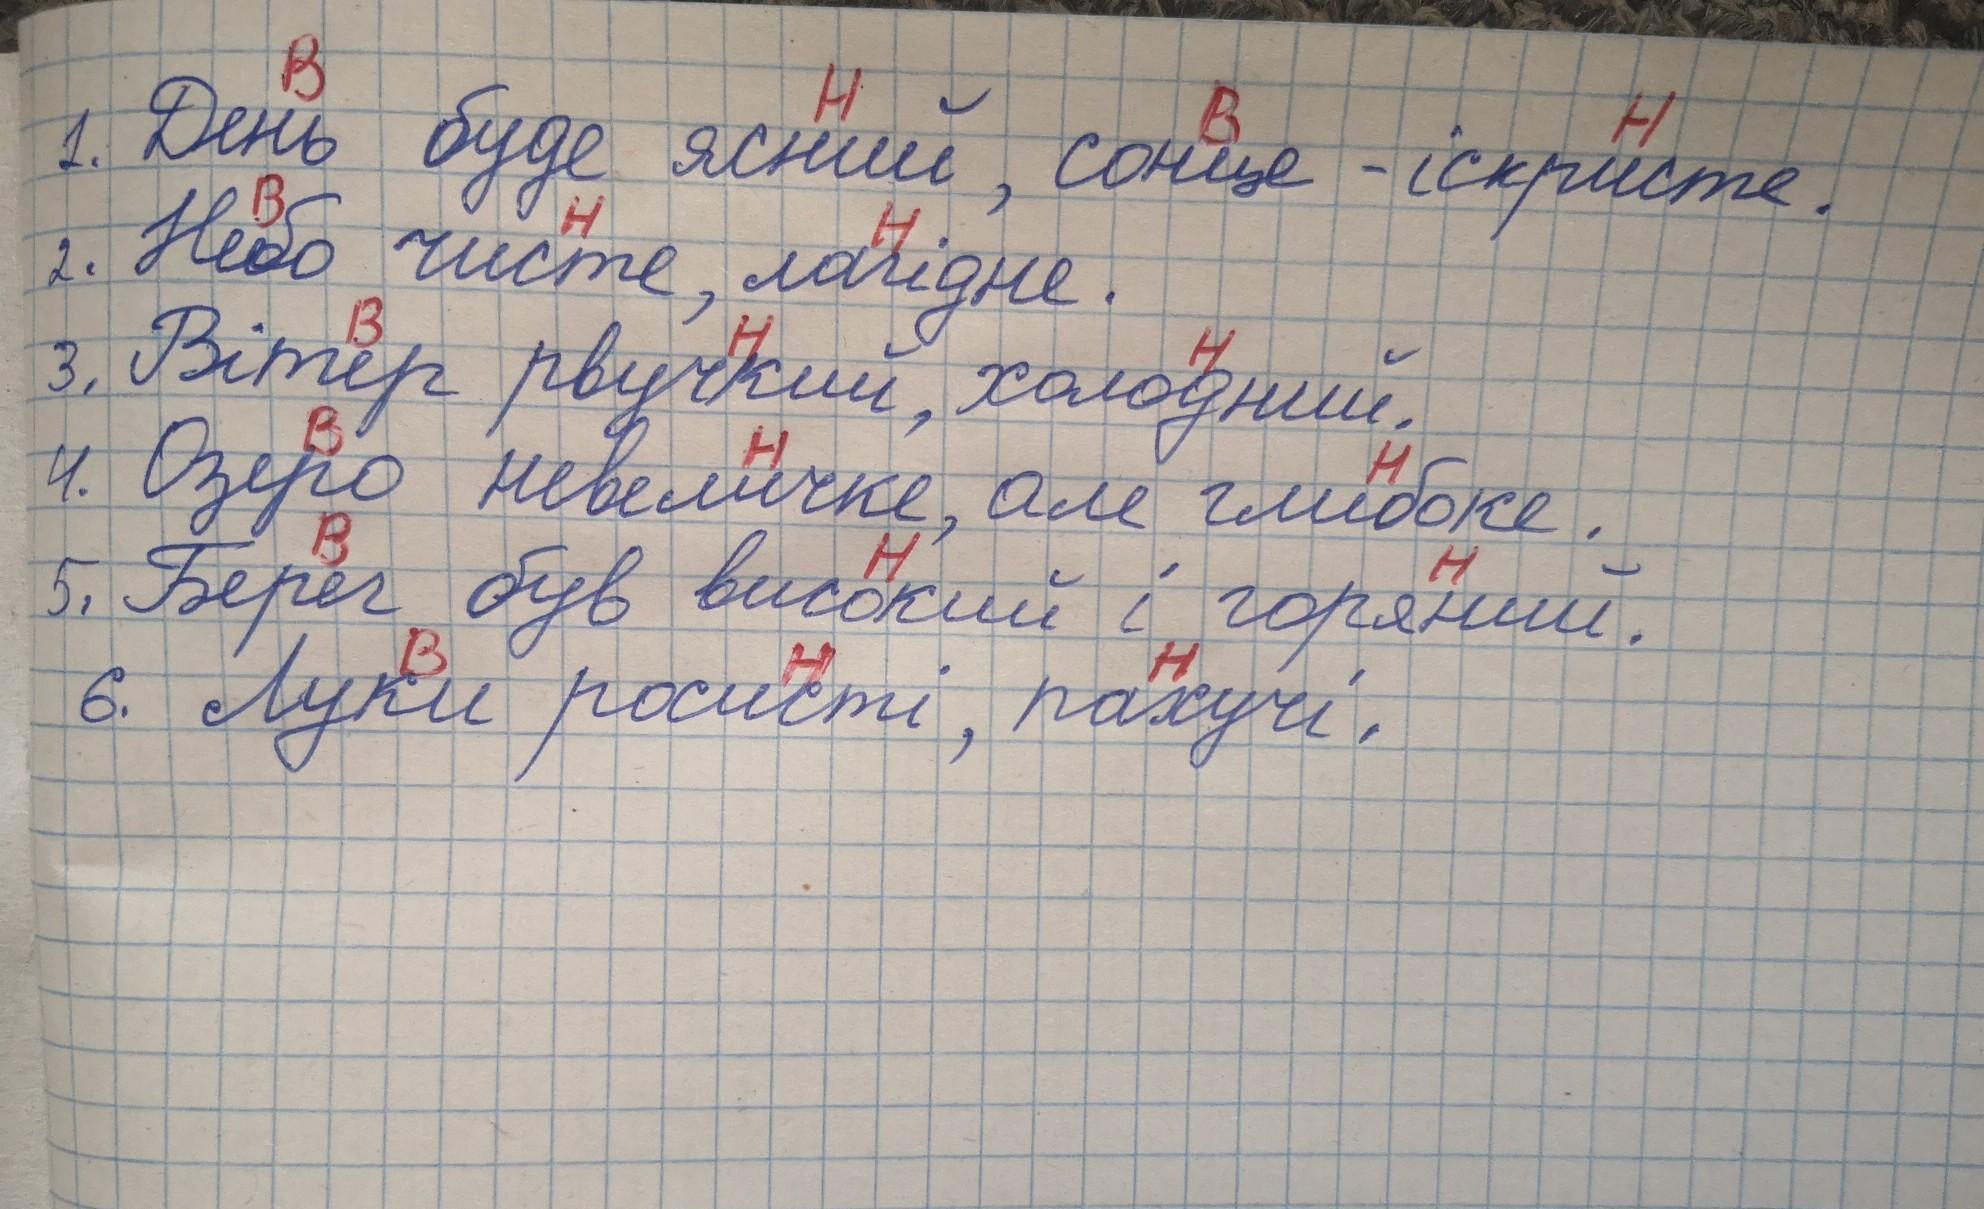 В Н В Н
1. День буде ясний, сонце - іскристе.
В Н Н
2. Небо чисте, лагідне.
В Н Н
3. Вітер рвучкий, холодний.
В Н Н
4. Озеро невеличке, але глибоке.
В Н Н
5. Берег був високий і горяний.
В Н Н
6. Луки росисті, пахучі.